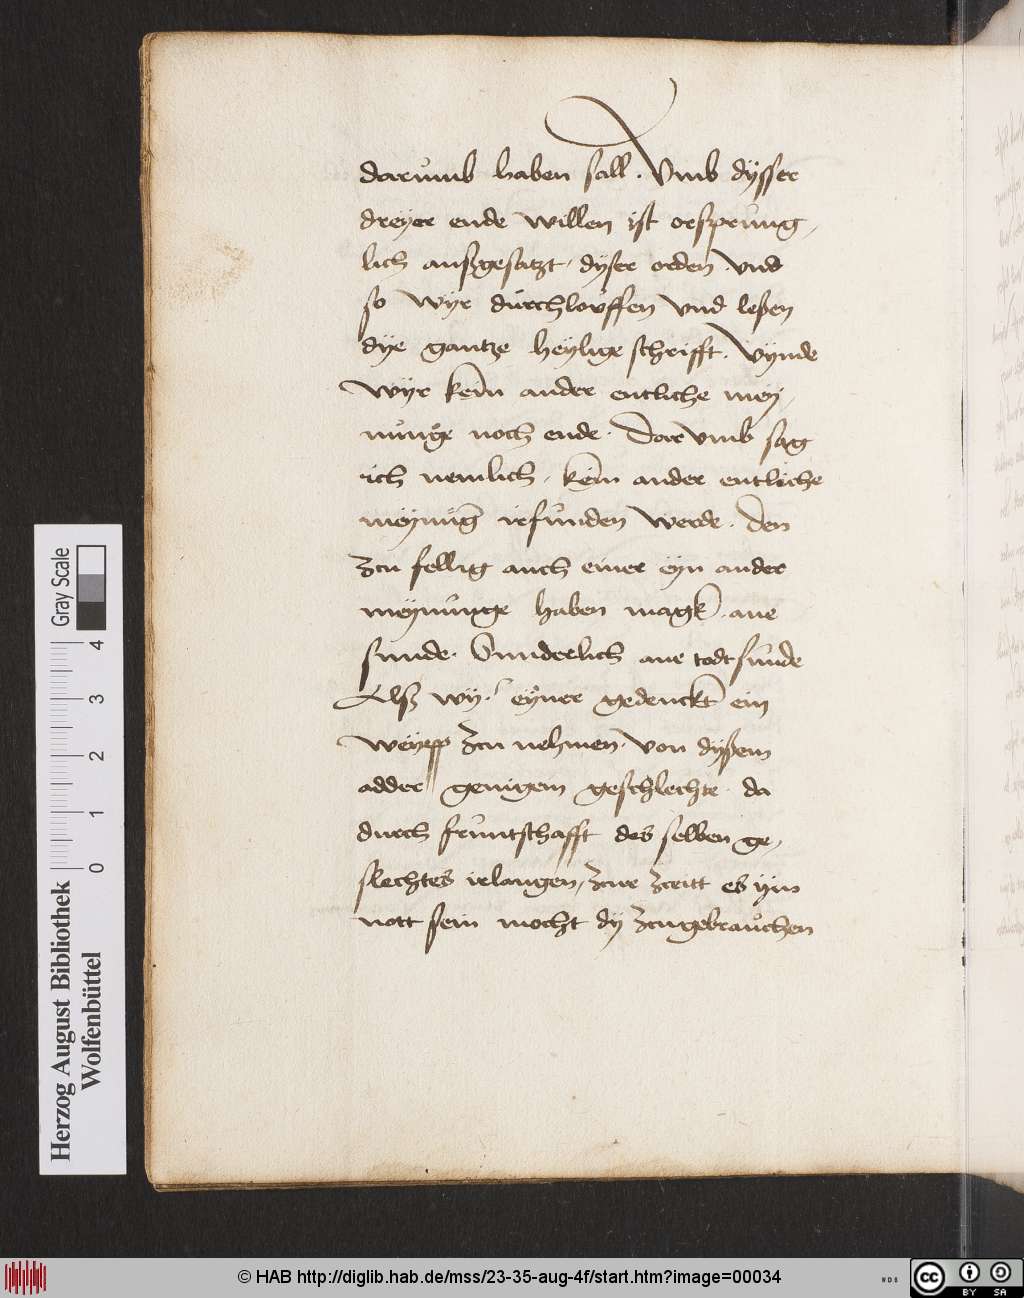 darumb haben sall. Vmb dÿsser
dreÿer ende willen ist orsprung,
lich auszgesatzt, dÿser orden. vnd
so wÿr durchlouffen vnd leßen
dÿe gantze heÿlige schrifft. vÿnde
wÿr kein ander entliche meÿ,
nunge noch ende. Dar vmb sag
ich nemlich, kein ander entliche
meÿnung irfunden werde. Den
zcu fellig auch einer eÿn ander
meÿnunge haben magk. ane
sunde. Sunderlich ane todt sunde
Alsz wÿ. eÿner gedenckt ein
zcu nehmen. von dÿßem
adder genigem geschlechte. da
durch fruntschafft des selben ge,
slechtes irlangen, zcur zceitt es ÿm
nott sein mocht dÿ zcugebrauchen
Herzog August Bibliothek
Wolfenbüttel
Gray Scale
0 1 2 3 4
© HAB http://diglib.hab.de/mss/23-35-aug-4f/start.htm?image=00034
WDB
cc BY SA